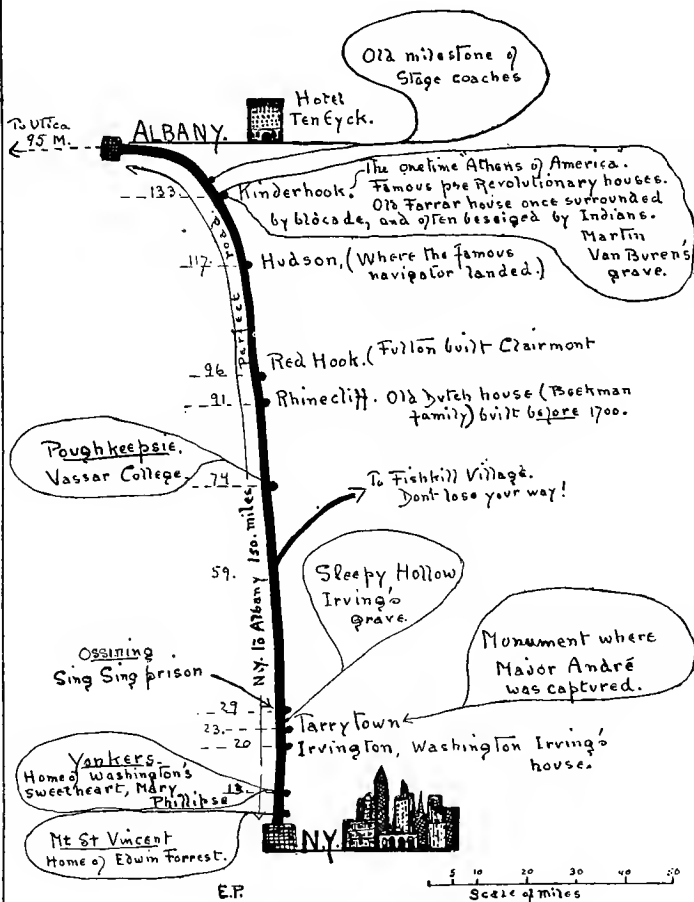 Old milestone of
Stage coaches
Hotel
TenEyck.
To Utica
95 M.
ALBANY.
133 Kinderhook. The onetime "Athens of America.
Famous pre Revolutionary houses.
Old Farrar house once surrounded
by blocade, and often beseiged by Indians.
Martin
Van Buren's
grave.
117. Hudson, (Where the famous
navigator landed.)
Perfect road
96 Red Hook. (Fulton built Clairmont
91 Rhinecliff. Old Dutch house (Beekman
family) built before 1700.
Poughkeepsie.
Vassar College
74
To Fishkill Village.
Dont lose your way!
N.Y. to Albany 150. miles
59.
Sleepy Hollow
Irving's
grave.
Ossining
Sing Sing prison
Monument where
Major André
was captured.
29
23. Tarrytown
20 Irvington, Washington Irving's
house.
Yonkers.
Home of Washington's
sweetheart, Mary
Phillipse
Mt St Vincent
Home of Edwin Forrest.
N.Y.
E.P.
5 10 20 30 40 50
Scale of miles